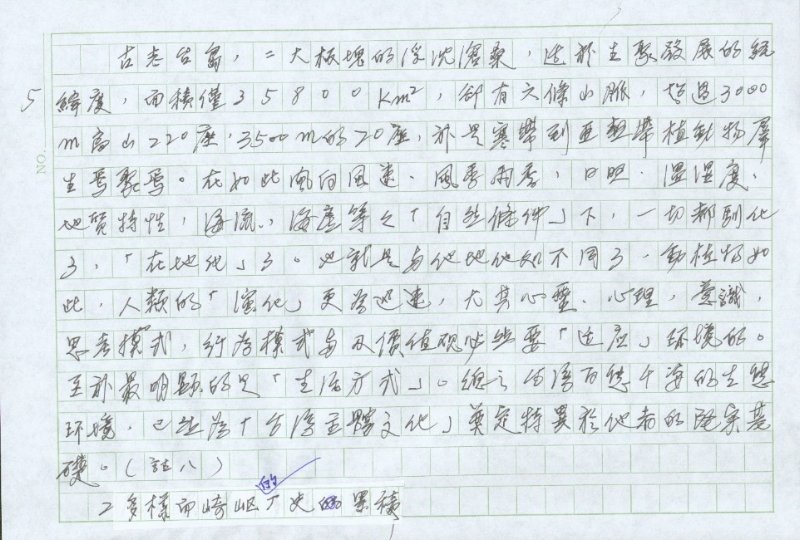 古老台島，二大板塊的浮沈滄桑，适於生聚發展的經
5 緯度，面積僅35800Km²，針有六條山脈，超過3000
m高山220座，3500m的20座，於是寒帶到亞熱帶植動物羣
生焉聚焉。在如此風向風速、風季雨季，日照、溫湿度、
地質特性，海流、海產等之「自然條件」下，一切都馴化
了，「在地化」了。也就是与他地他如不同了，動植物如
此，人類的「演化」更為迅速，尤其心靈、心理，意識，
思考模式，行為模式与及價值观必然要「适应」环境的。
至於最明顯的是「生活方式」。總之台湾百態千姿的生態
环境，已然為「台湾主體文化」奠定特異於他者的堅実基
礎。（註八）
2多樣而崎岖的「史的累積
NO.